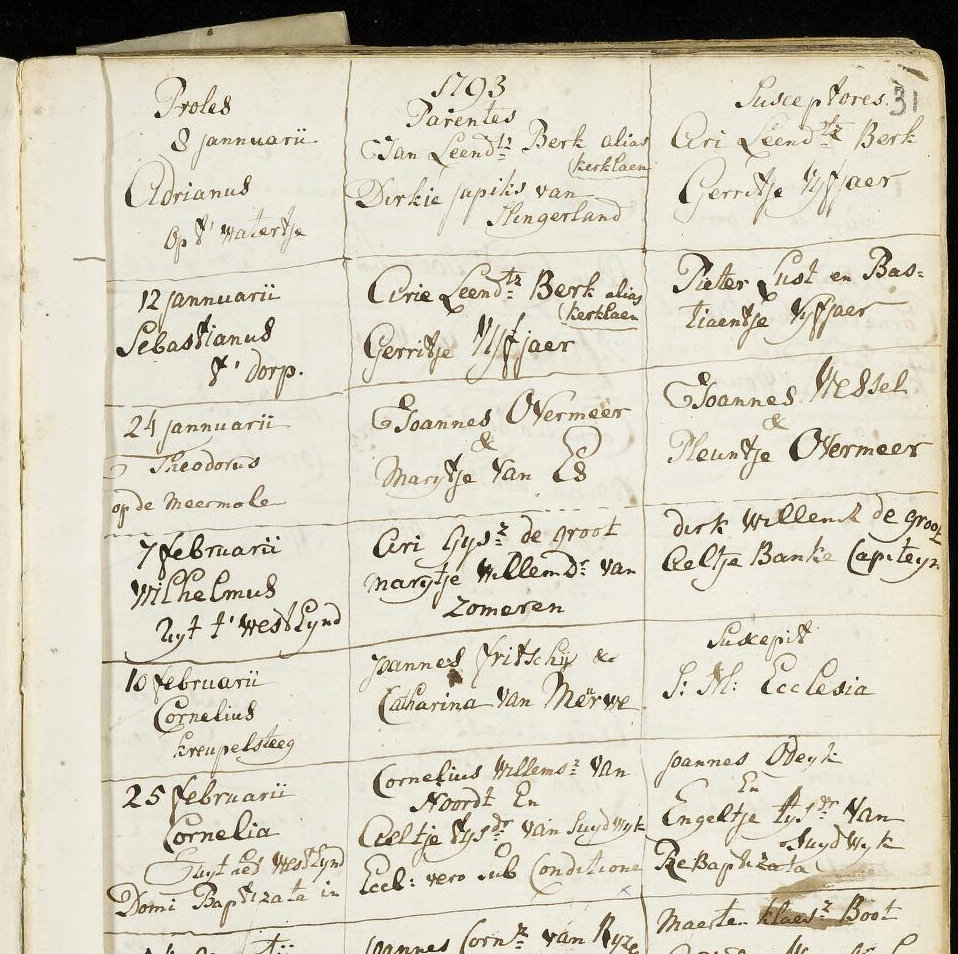 31
1793
Proles
Parentes
Susceptores.
8 jannuarii
Adrianus
op t' watertje
Jan Leendtz Berk alias
(kerklaen
Dirkie japiks van
Slingerland
Ari Leendtz Berk
Gerritje Vyfjaer
12 jannuarii
Sebastianus
t' dorp.
Arie Leendtz Berk alias
(kerklaen
Gerritje Vyfjaer
Pieter Lust en Bas=
tiaentje Vyfjaer
24 jannuarii
Theodorus
op de Meermole
Joannes Overmeer
&
Marytje van Es
Joannes Wessel
&
Pleuntje Overmeer
7 februarii
Wilhelmus
Uyt t' westEynd
Ari Gysz de groot
marytje Willemdr van
Zomeren
dirk Willemsz de groot
Aeltje Banke Capiteyn
10 februarii
Cornelius
kreupelsteeg
joannes fritschij &
Catharina van Merwe
Suscepit
S: M: Ecclesia
25 februarii
Cornelia
uyt het westEynd
Domi Baptizata in
Cornelius Willemsz van
Noordt En
Aeltje tysdr van Suydwyk
Eccl: vero sub Conditione
joannes Odeyk
En
Engeltje tysdr van
Suydwyk
ReBaptizata
joannes Cornz van Ryze
Maerten klaesz Boot